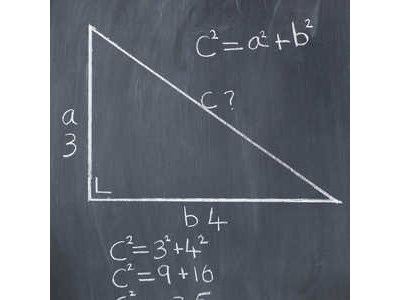 C²=a²+b²
C?
a
3
b 4
C²=3²+4²
C²=9+16